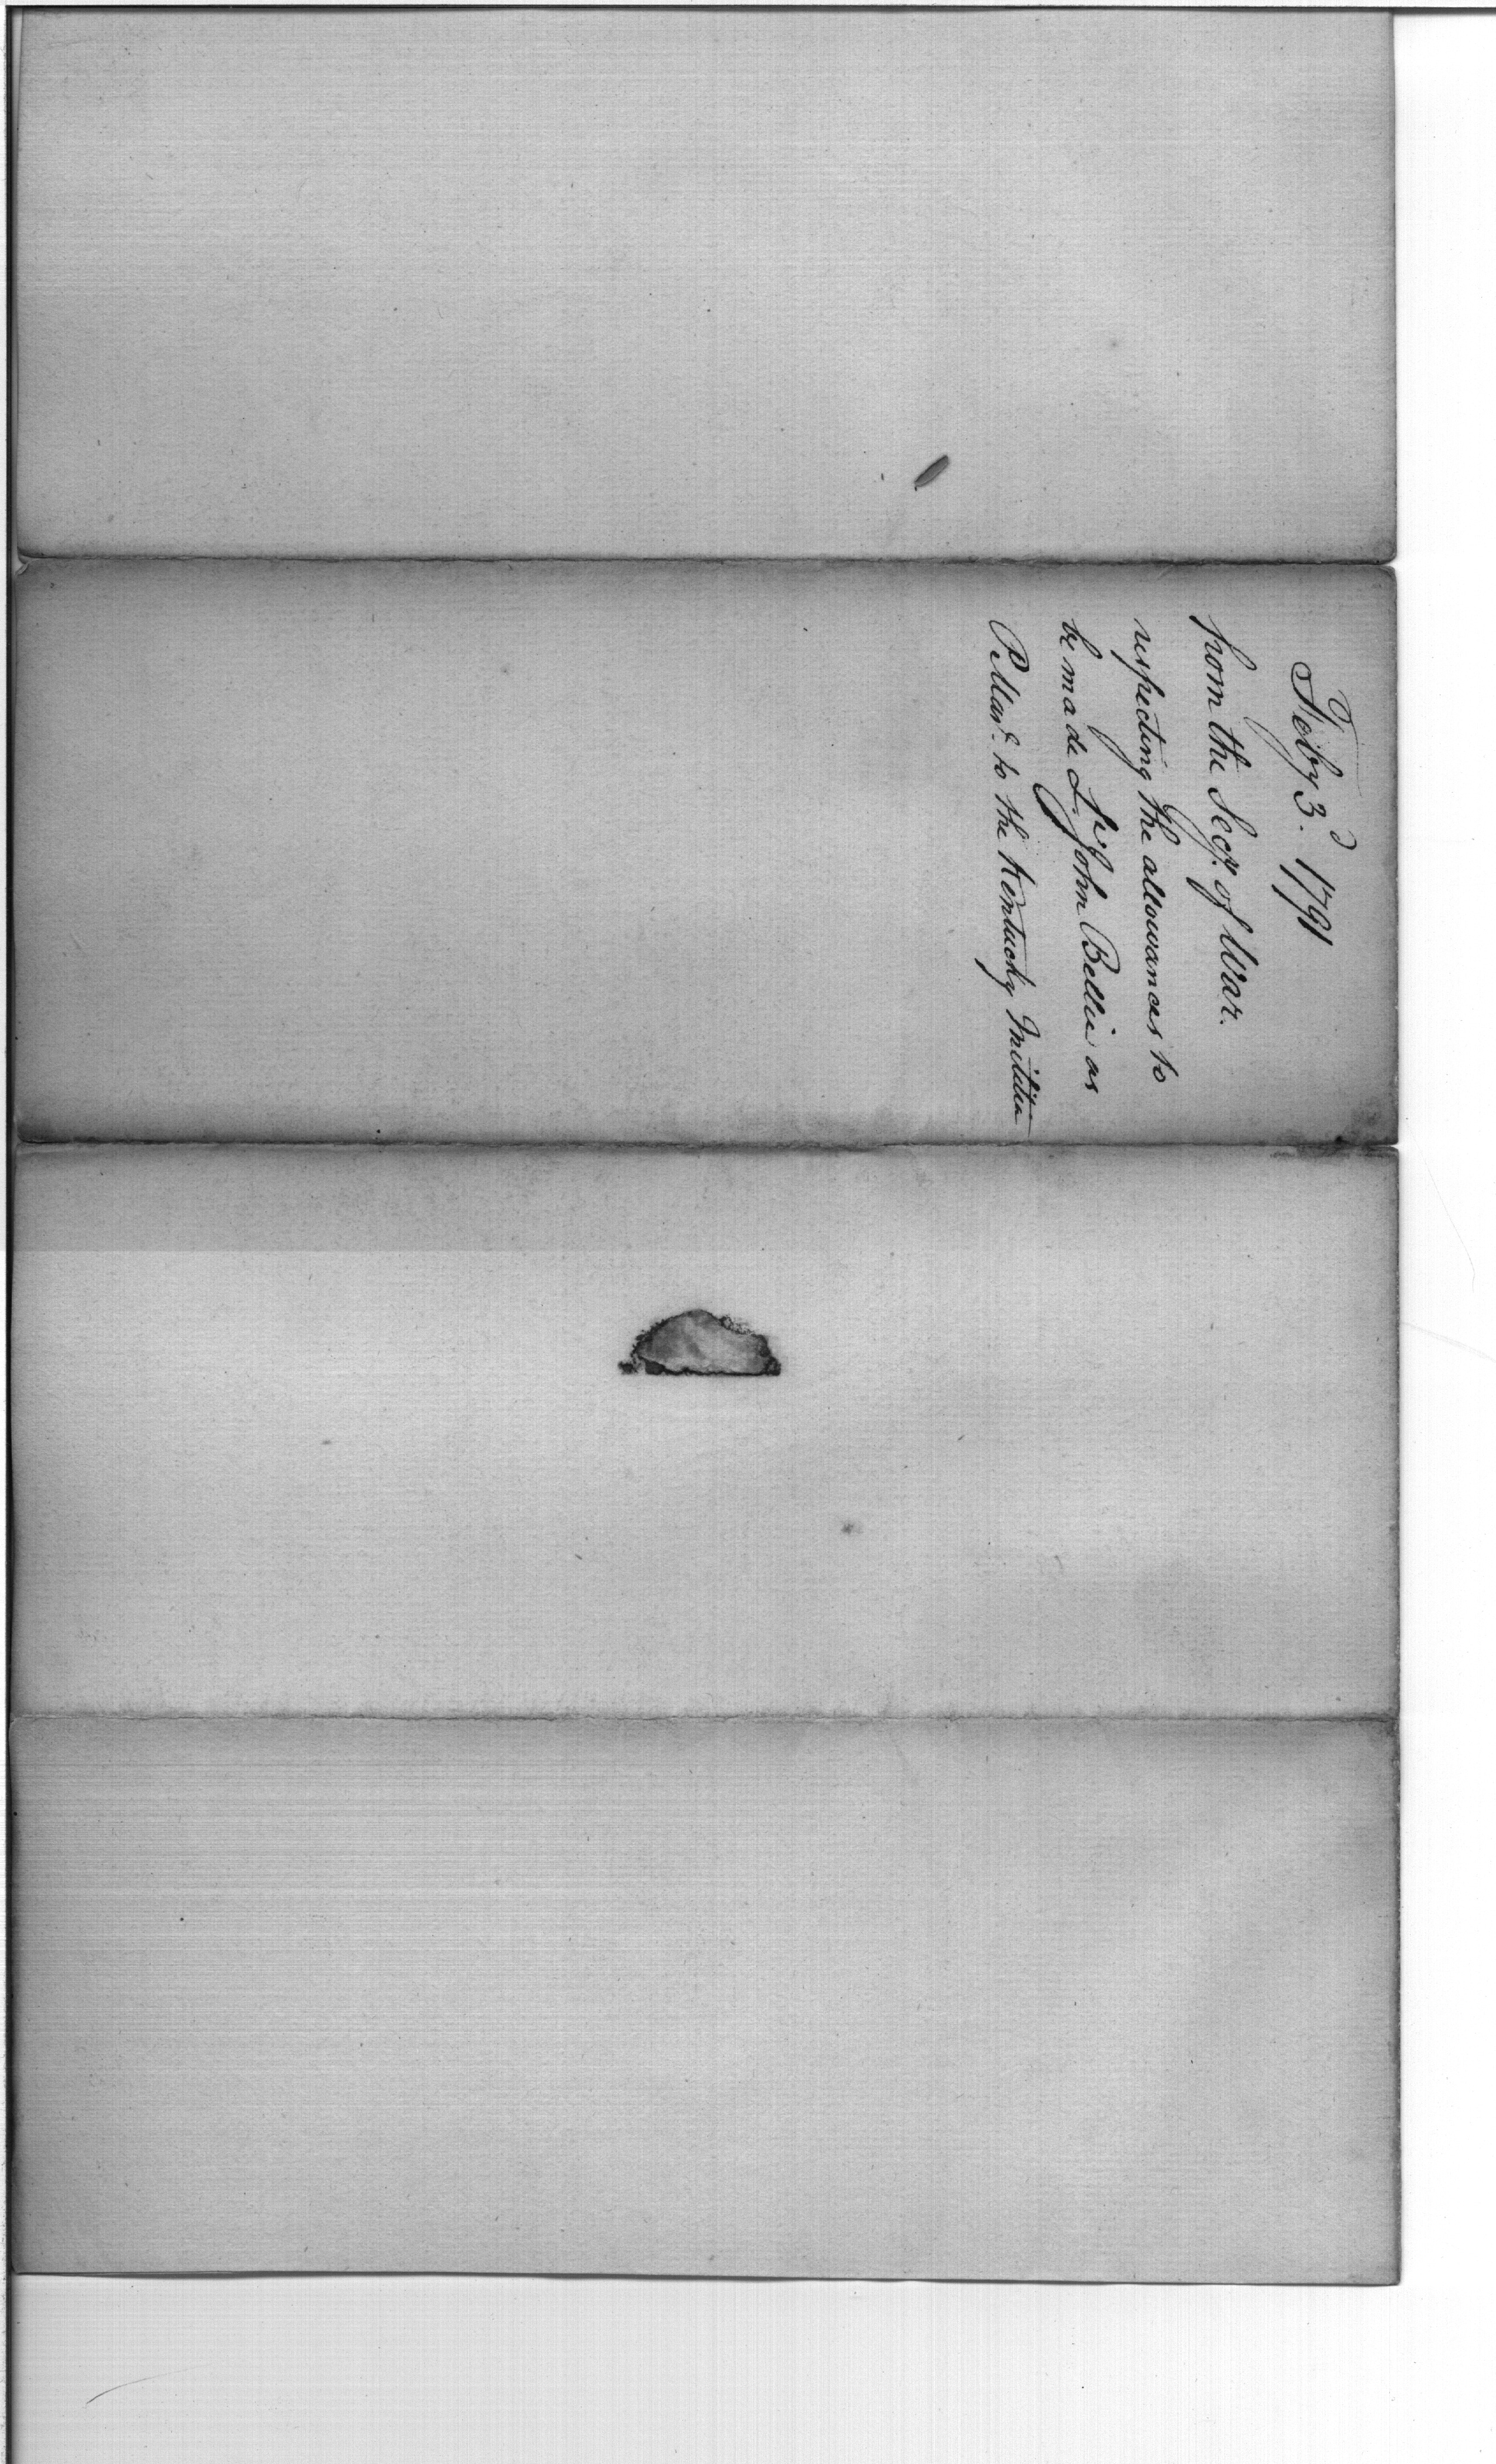 Feby 3.d 1791
from the Secy. of War.
respecting the allowances to
be made Lt. John Bellie as
P. Masr. to the Kentucky Militia